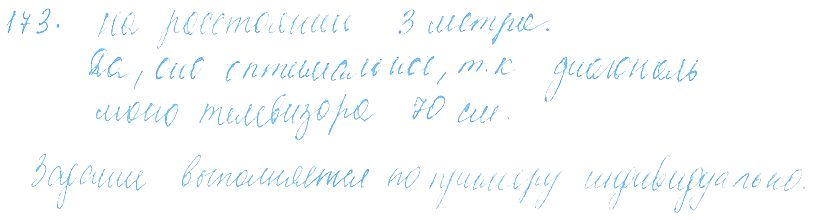 173. на расстоянии 3 метра.
Да, оно оптимальное, т.к. диагональ
моего телевизора 70 см.
Задание выполняется по примеру индивидуально.